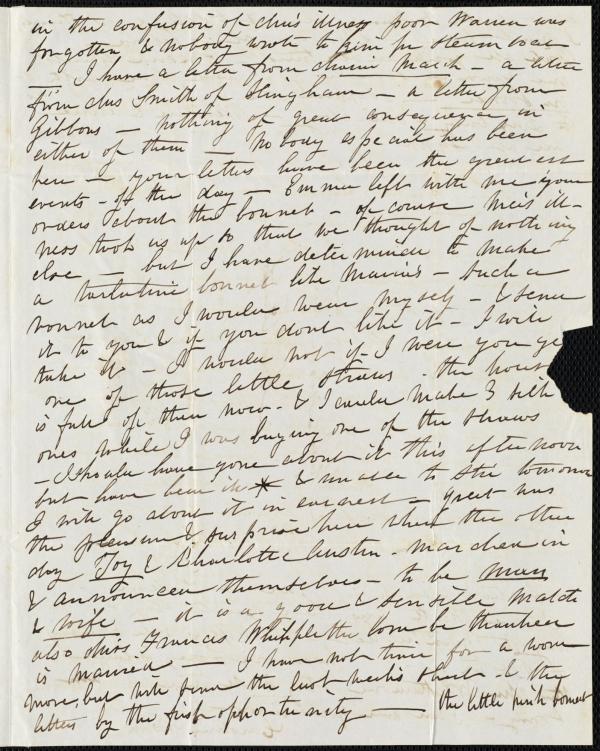 in the confusion of this illness poor Warren was
forgotten & nobody wrote to him per steam boat
— I have a letter from March — a letter
from Mrs Smith of Hingham — a letter from
Gibbons — nothing of great consequence in
either of them — Nobody especial has been
here — your letters have been the greatest
events — of the day — Emma left with me your
orders about the bonnet — of course this ill-
ness took us up so that we thought of nothing
else — but I have determined to make
a tarlatine bonnet like Maria's — such a
bonnet as I would wear myself — & send
it to you & if you dont like it — I will
take it — I would not if I were you ge
one of those little straws — the hous
is full of them now — & I could make 3 silk
ones while I was buying one of the straws
— I should have gone about it this afternoon
but have been & unable to stir tomorrow
I will go about it in earnest — great was
the pleasure & surprise here when the other
day Joy & Charlotte Austin — marched in
& announced themselves — to be man
& wife — it is a good & sensible match
also Miss Frances Whipple the Lord be thanked
is married — I have not time for a word
more, but will send the last week's sheet & the
letters by the first opportunity — the little pink bonnet